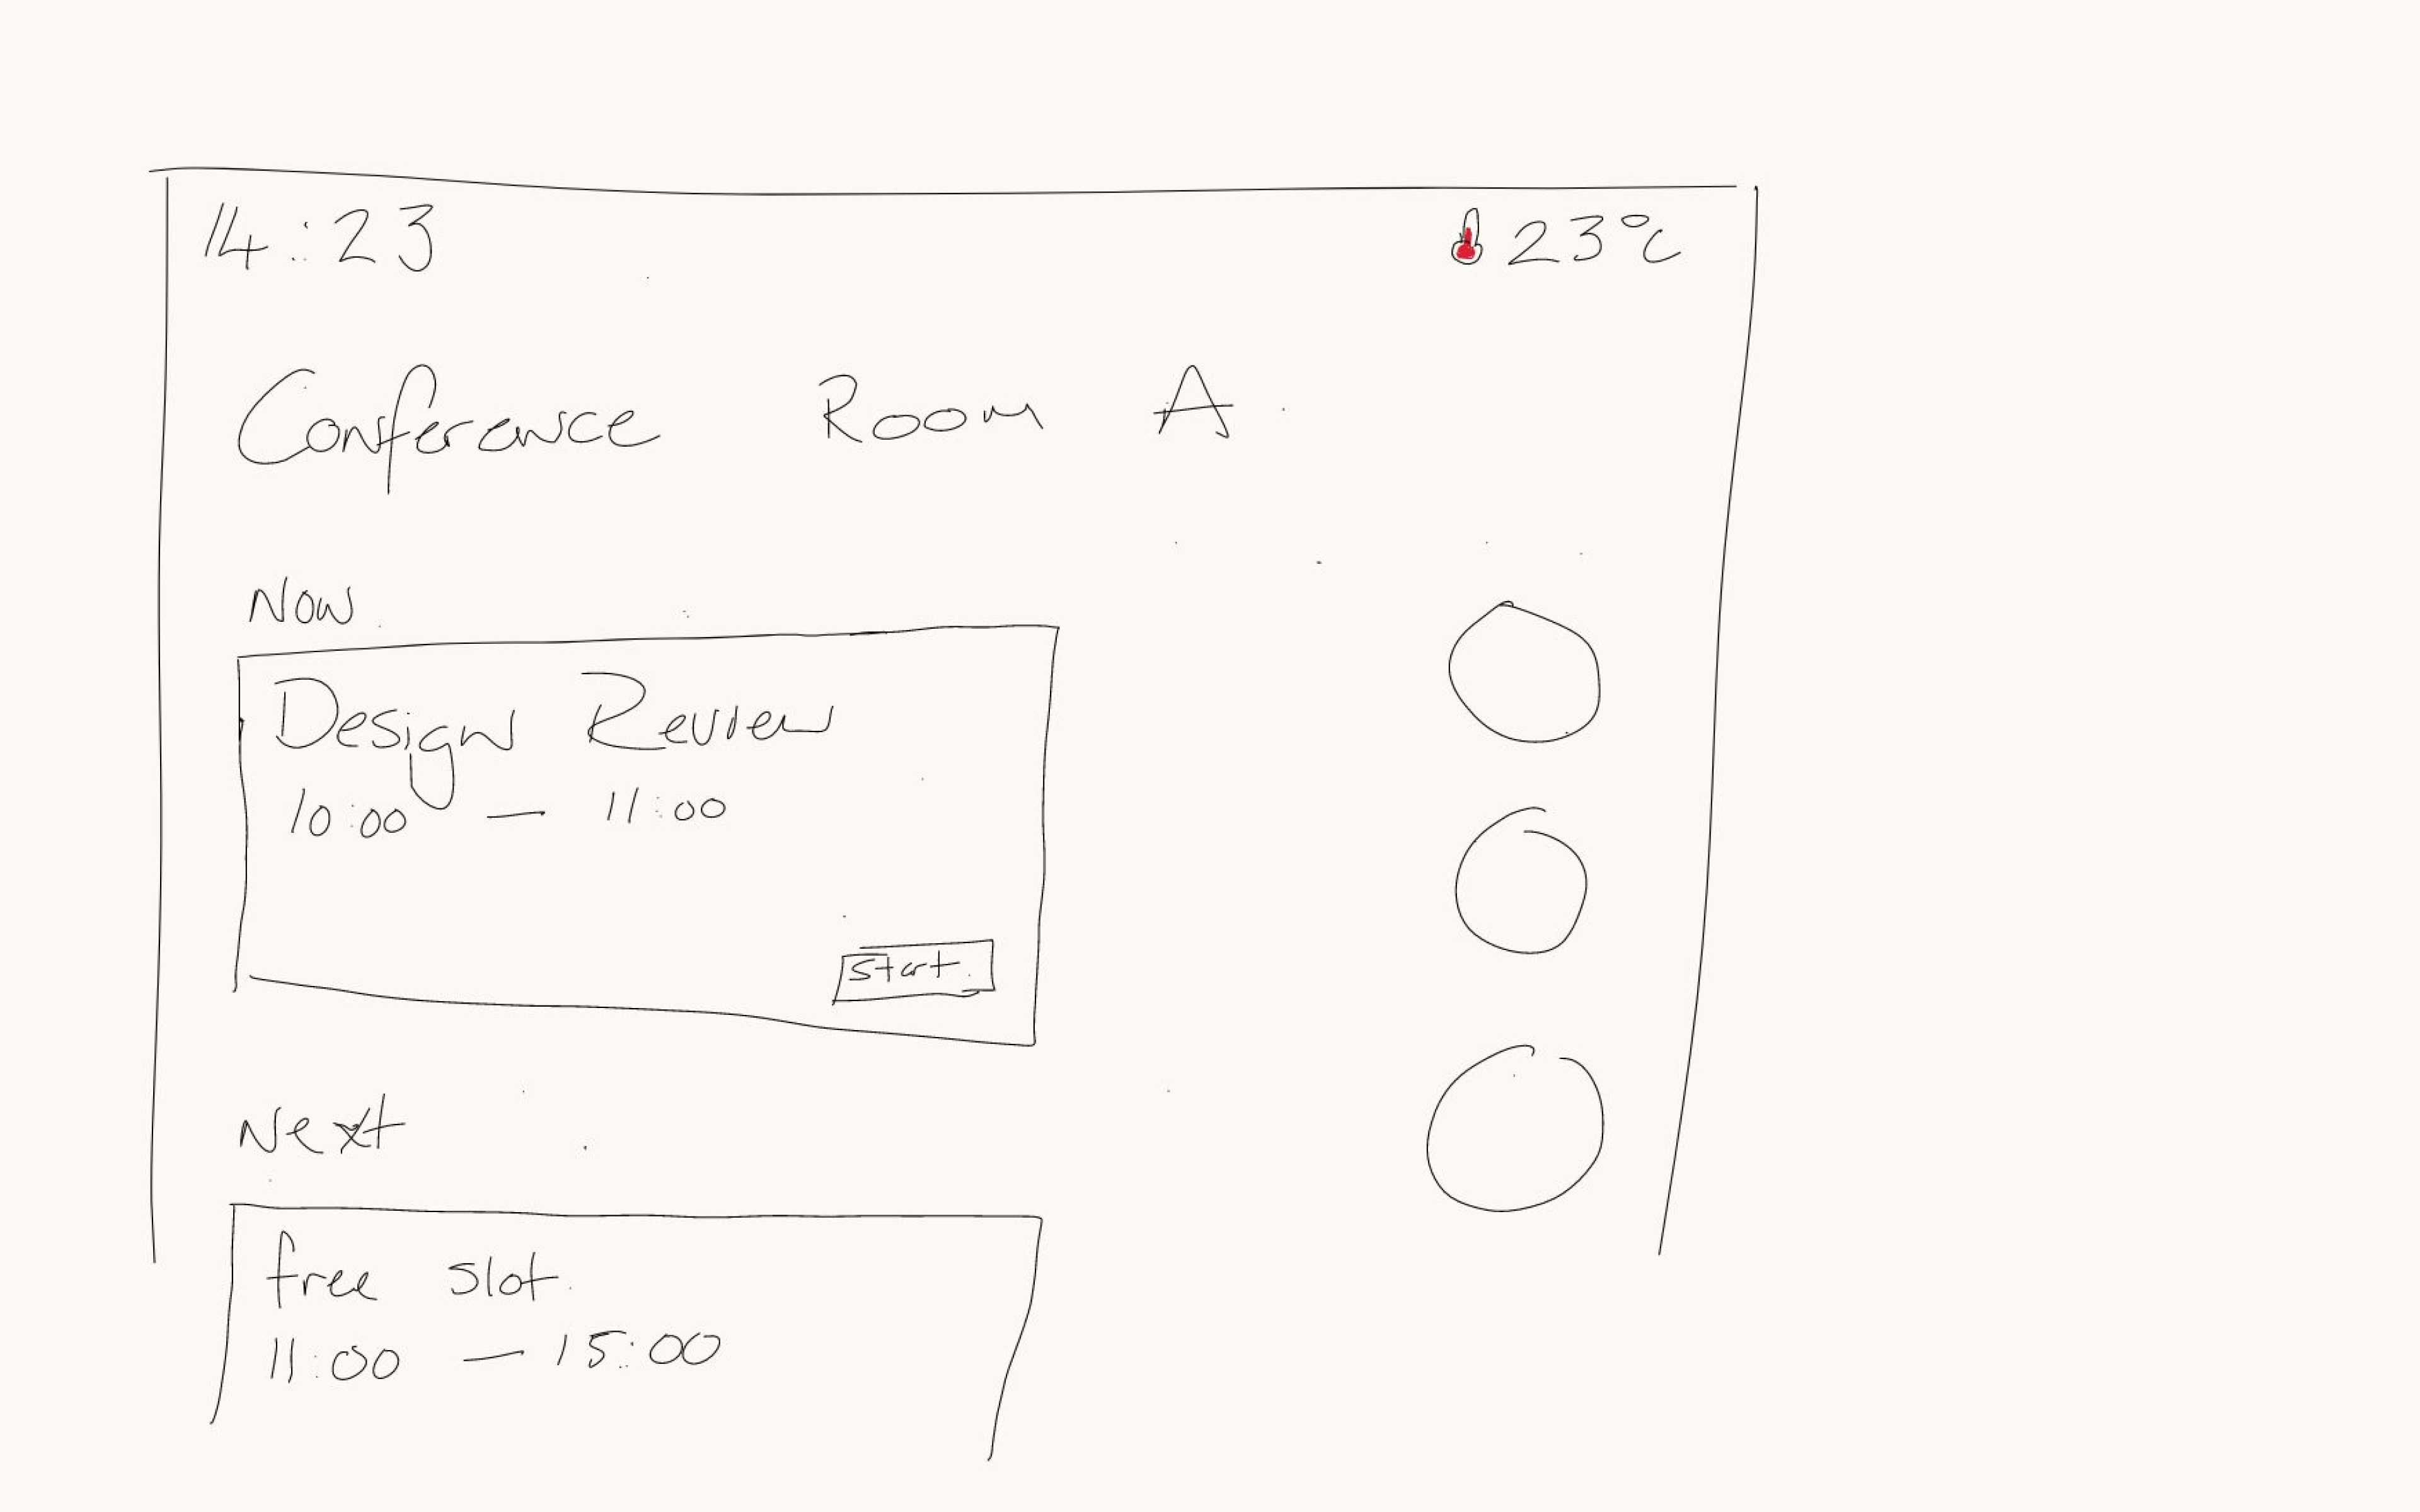 14:23
23°C
Conference Room A
Now
Design Review
10:00 — 11:00
Start
Next
free slot
11:00 — 15:00